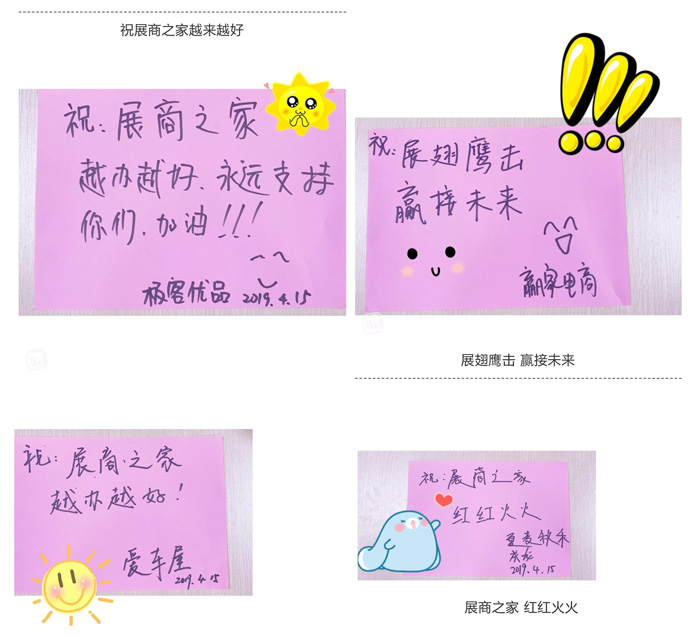 祝展商之家越来越好
祝:展商之家
越办越好、永远支持
你们、加油!!!
极客优品 2019.4.15
祝:展翅鹰击
赢接未来
赢家电商
展翅鹰击 赢接未来
祝:展商之家
越办越好!
爱车屋
2019.4.15
祝:展商之家
红红火火
2019.4.15
展商之家 红红火火